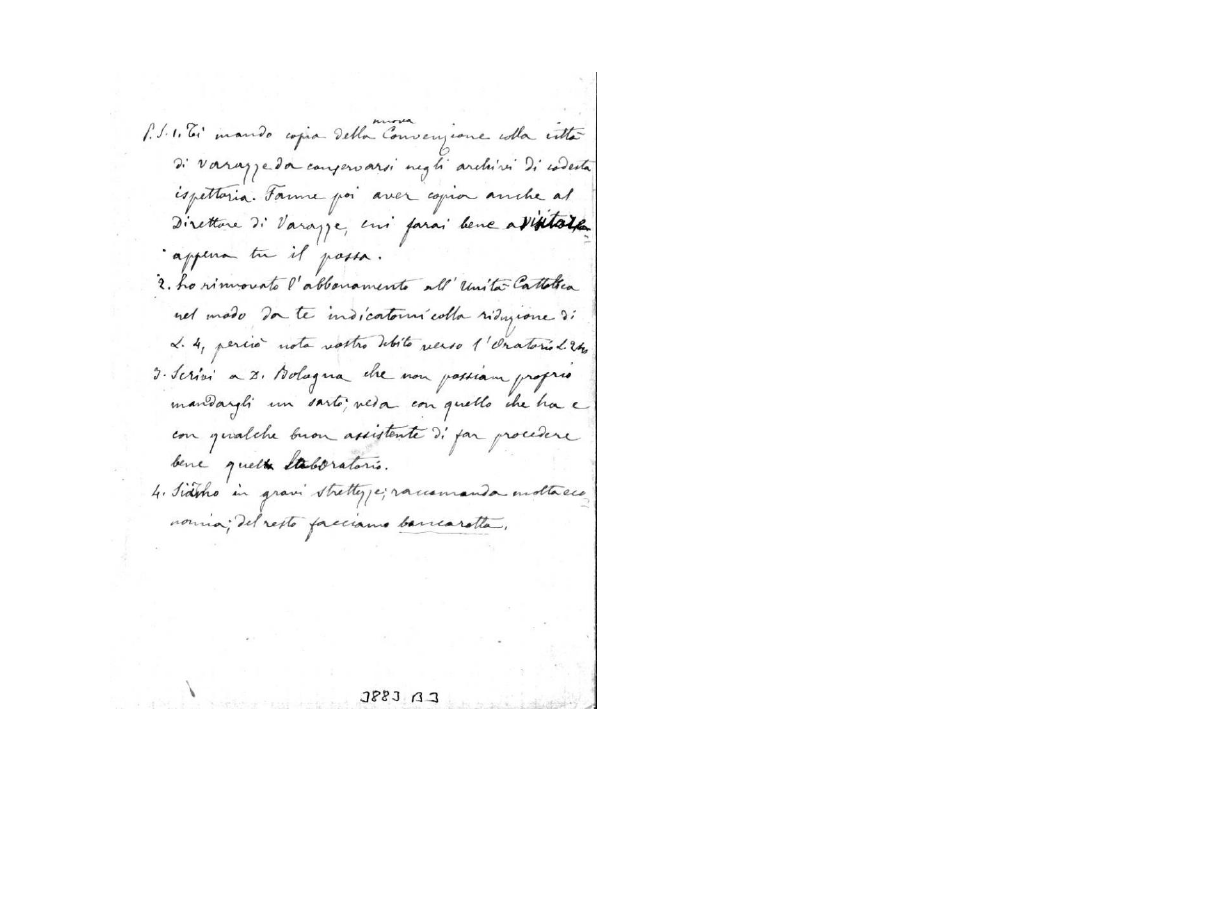 P.S. 1. Ti mando copia della nuova Convenzione colla città
di Varazze da conservarsi negli archivi di codesta
ispettoria. Fanne poi aver copia anche al
Direttore di Varazze, cui farai bene a visitare
appena tu il possa.
2. ho rinnovato l'abbonamento all'Unità Cattolica
nel modo da te indicatomi colla riduzione di
L. 4, perciò nota vostro debito verso l'Oratorio L.
3. Scrivi a D. Bologna che non possiam proprio
mandargli un sarto; veda con quello che ha e
con qualche buon assistente di far procedere
bene quel laboratorio.
4. in gravi strettezze; raccomanda molta eco
nomia; del resto facciamo bancarotta.
3883 B3